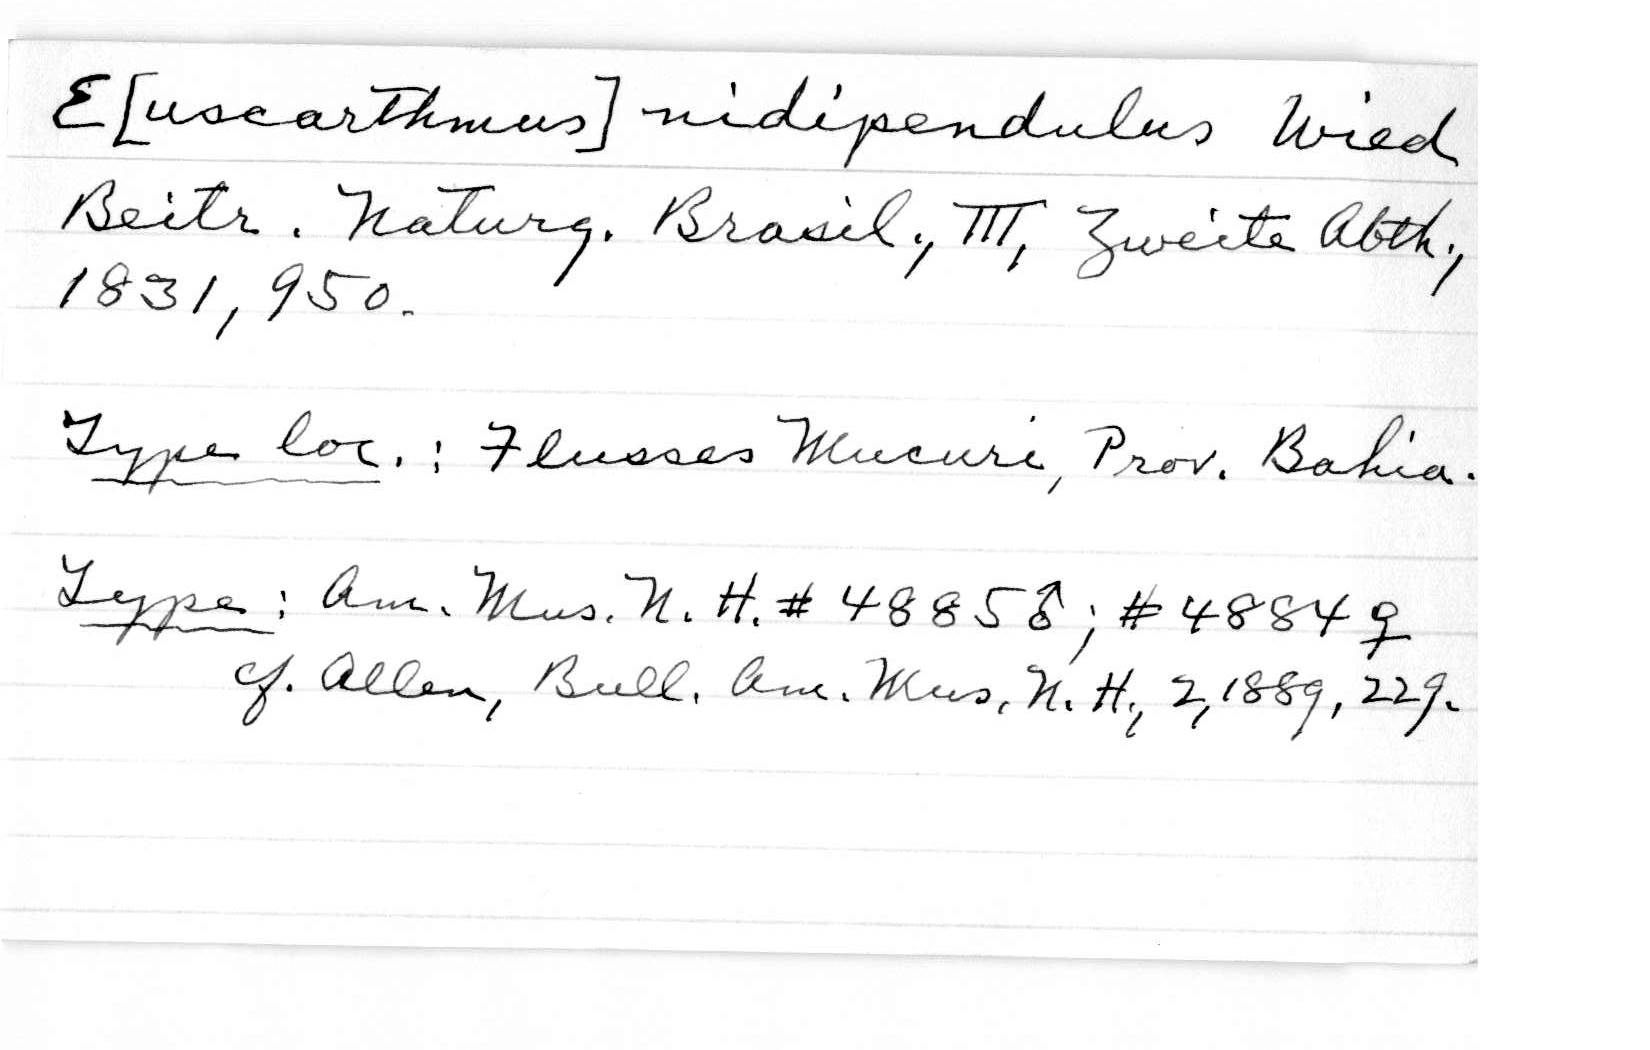 E[uscarthmus] nidipendulus Wied
Beitr. Naturg. Brasil., III, Zweite Abth.,
1831, 950.
Type loc.: Flusses Mucuri, Prov. Bahia.
Type: Am. Mus. N. H. # 4885 ♂; # 4884 ♀
cf. Allen, Bull. Am. Mus. N. H., 2, 1889, 229.